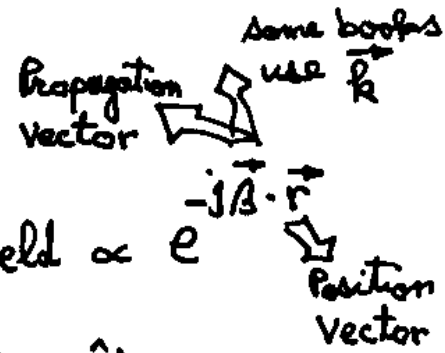 some books
use k⃗
Propagation
vector
eld ∝ e^{-jβ⃗·r⃗}
Position
vector